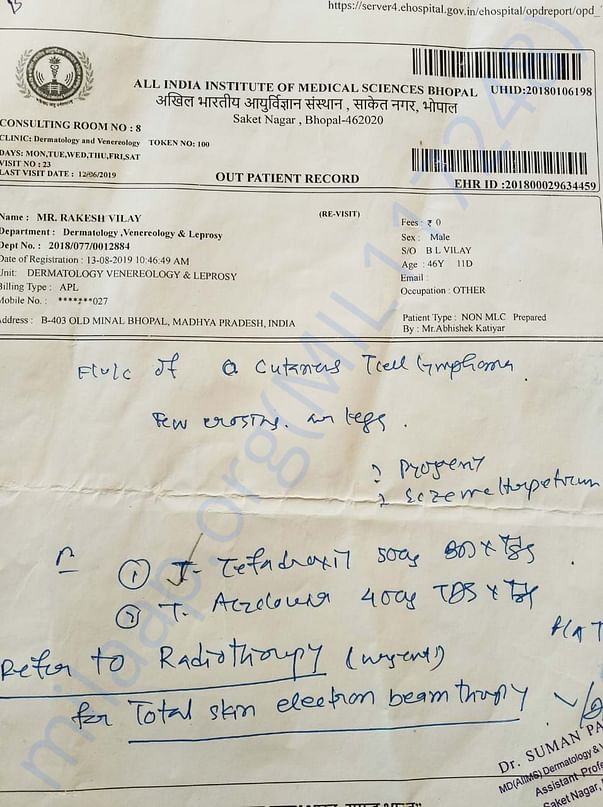 https://server4.ehospital.gov.in/ehospital/opdreport/opd_
ALL INDIA INSTITUTE OF MEDICAL SCIENCES BHOPAL UHID:20180106198
अखिल भारतीय आयुर्विज्ञान संस्थान , साकेत नगर, भोपाल
Saket Nagar , Bhopal-462020
CONSULTING ROOM NO : 8
CLINIC: Dermatology and Venereology TOKEN NO: 100
DAYS: MON,TUE,WED,THU,FRI,SAT
VISIT NO : 23
LAST VISIT DATE : 12/06/2019
OUT PATIENT RECORD
EHR ID :201800029634459
(RE-VISIT)
Name : MR. RAKESH VILAY
Department : Dermatology ,Venereology & Leprosy
Dept No. : 2018/077/0012884
Date of Registration : 13-08-2019 10:46:49 AM
Unit: DERMATOLOGY VENEREOLOGY & LEPROSY
Billing Type : APL
Mobile No. : *******027
Address : B-403 OLD MINAL BHOPAL, MADHYA PRADESH, INDIA
Fees : ₹ 0
Sex : Male
S/O B L VILAY
Age : 46Y 11D
Email :
Occupation : OTHER
Patient Type : NON MLC Prepared
By : Mr.Abhishek Katiyar
of a Cutaneous T cell lymphoma
Few erosins. on legs .
? 
? Eczema herpeticum
① T- Cefadroxil 500mg BD x
② T. 400mg TDS x
Refer to Radiotherapy (urgent)
for Total skin electron beam therapy
Dr. SUMAN
MD(AIIMS) Dermatology &
Assistant
Saket Nagar,
milaap.org(MIL117248)